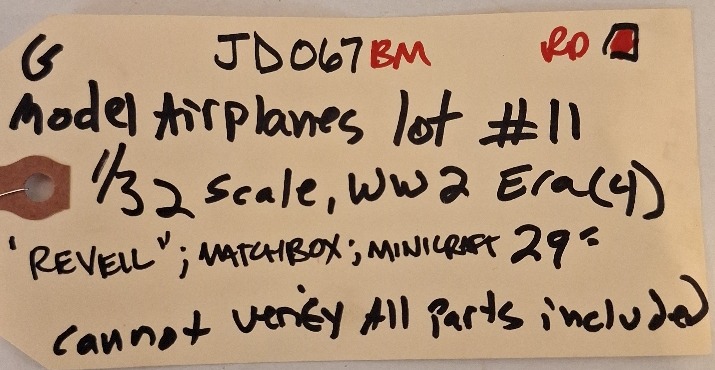 G JD067BM RD
Model Airplanes lot #11
1/32 Scale, WW2 Era(4)
"REVELL"; MATCHBOX; MINICRAFT 29=
cannot verify All Parts included